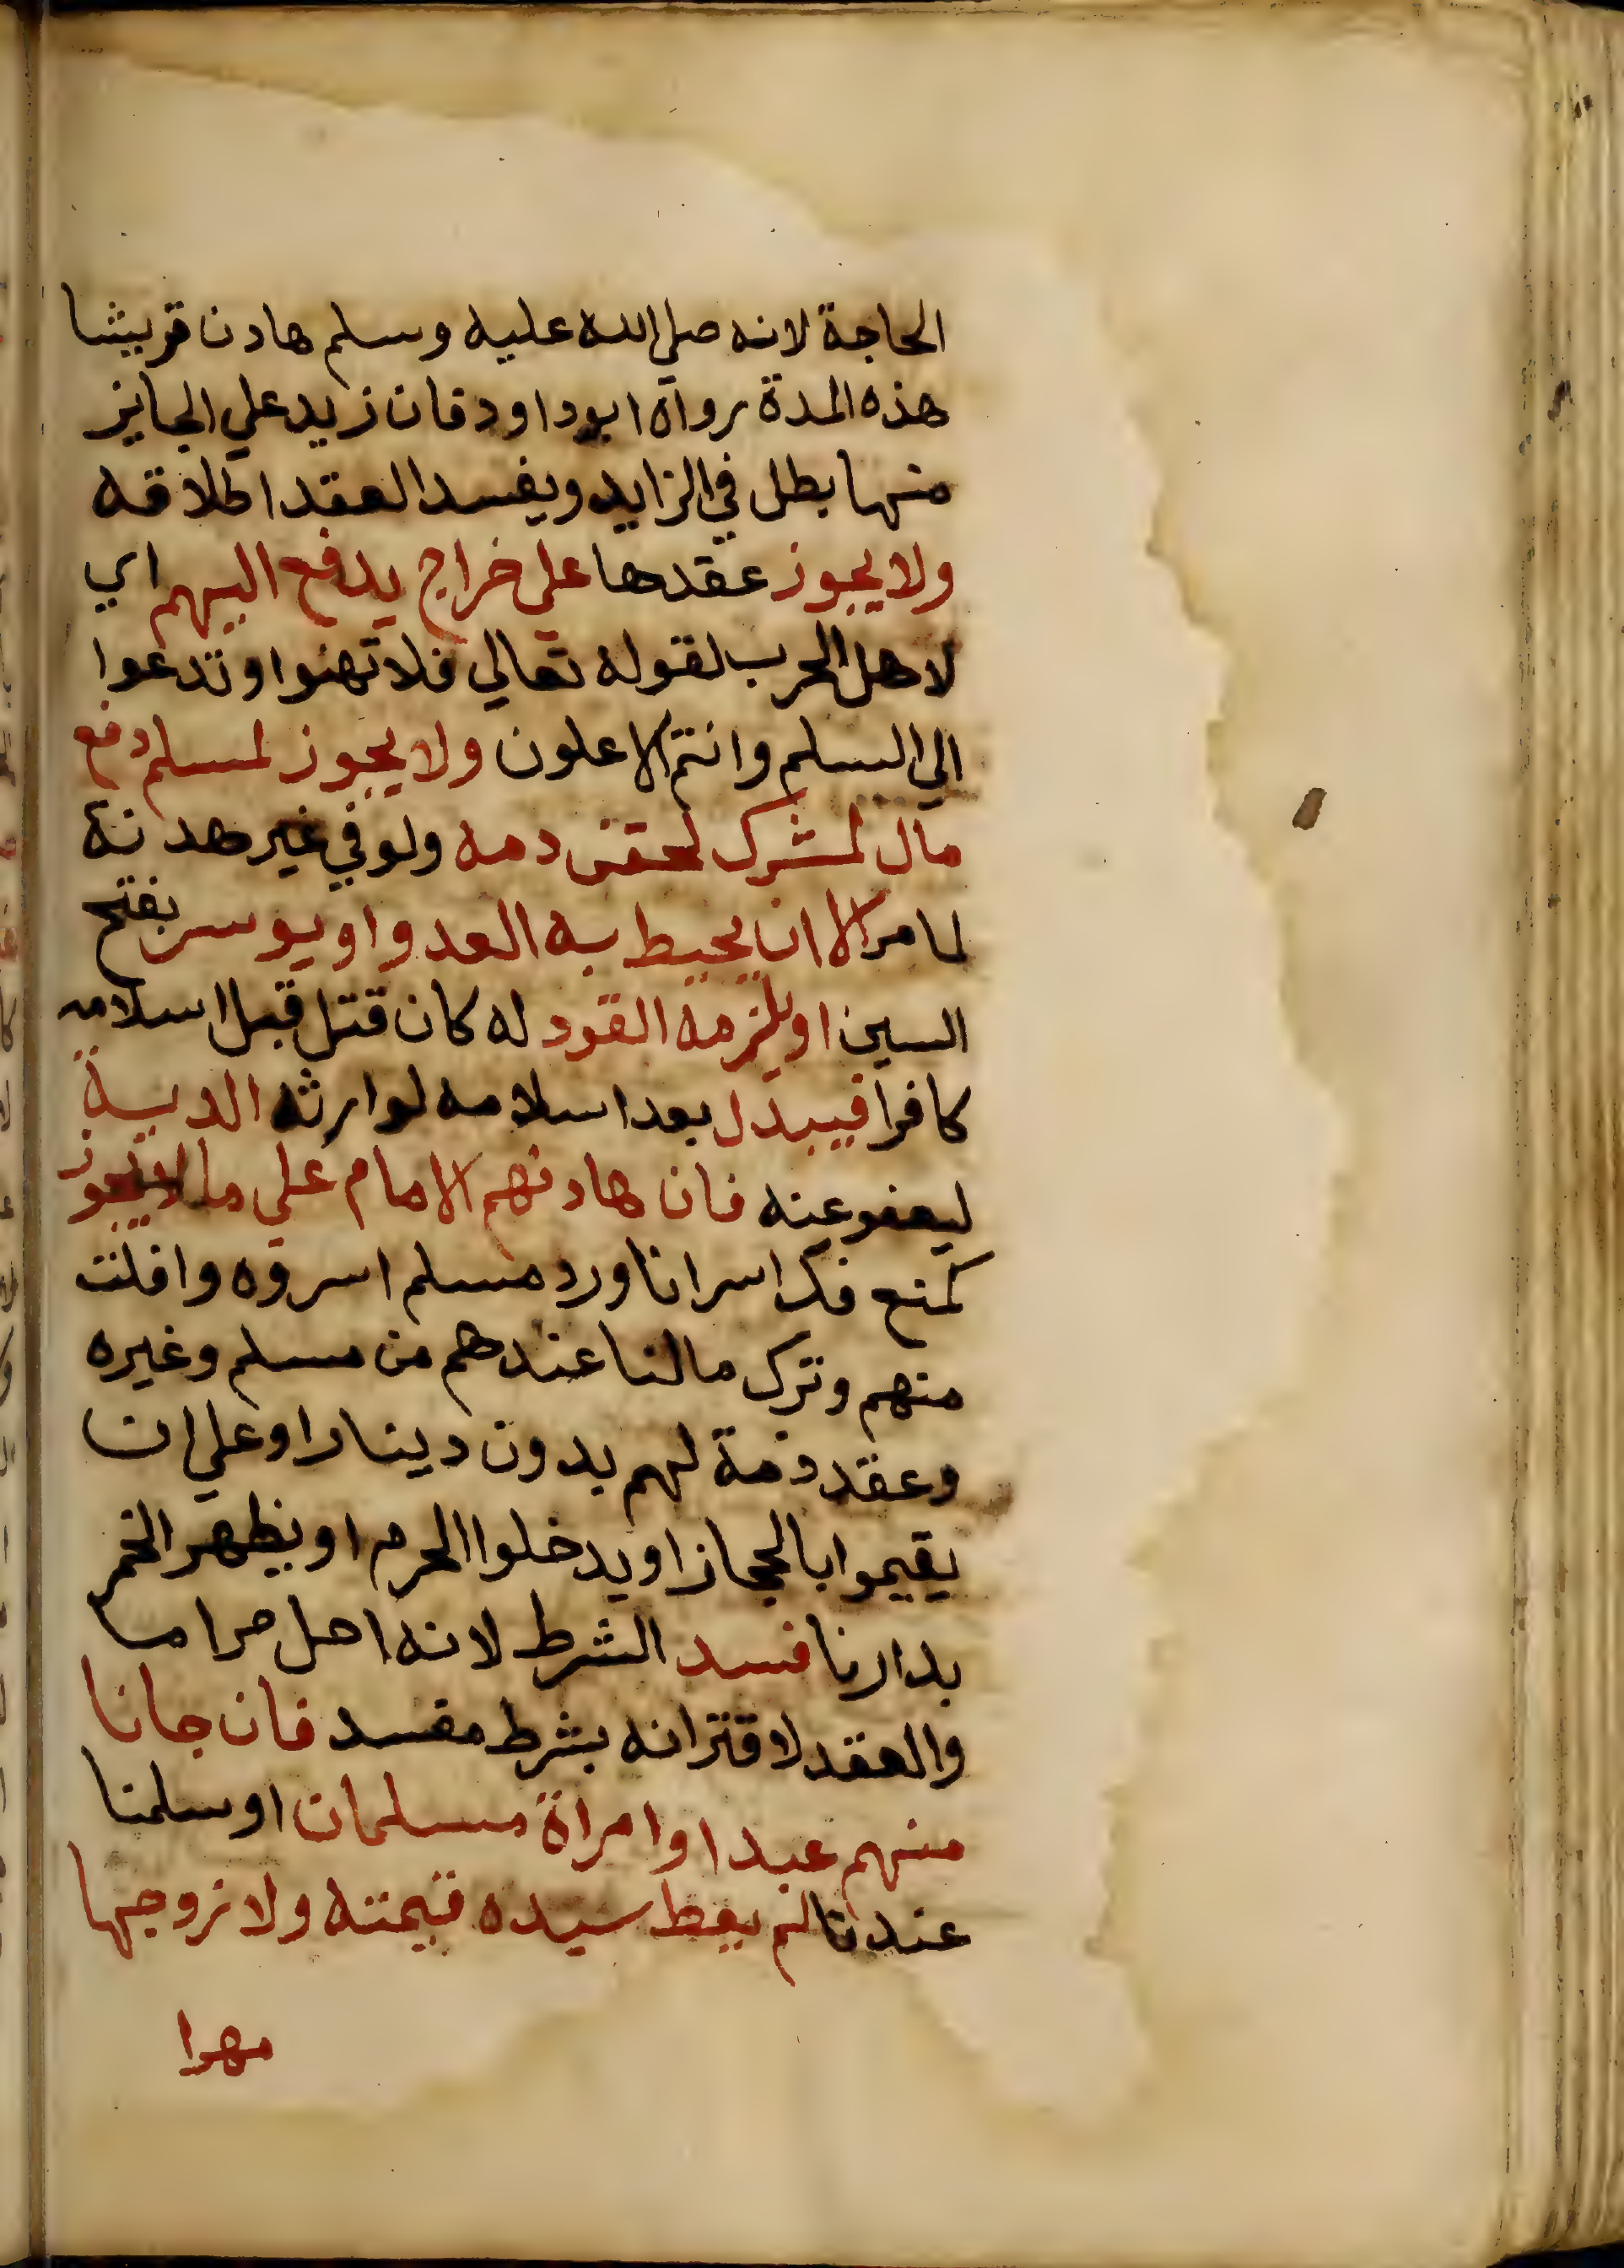 الحاجة لانه صلي الله عليه وسلم هادن قريشا
هذه المدة رواه ابو داود فان زيد علي الجايز
منها بطل في الزايد ويفسد العقد اطلاقه
ولا يجوز عقدها علي خراج يدفع اليهم اي
لاهل الحرب لقوله تعالي فلا تهنوا وتدعوا
الي السلم وانتم الاعلون ولا يجوز لمسلم دفع
مال لمشرك لحقن دمه ولو في غير هدنة
لما مر الا ان يحيط به العدو او يوسر بفتح
السين او يلزمه القود له كان قتل قبل اسلامه
كافرا فيبذل بعد اسلامه لوارثه الدية
ليعفو عنه فان هادنهم الامام علي ما لا يجوز
كمنع فك اسرانا ورد مسلم اسروه وافلت
منهم وترك مالنا عندهم من مسلم وغيره
وعقد ذمة لهم بدون دينار او علي ان
يقيموا بالحجاز او يدخلوا الحرم او يظهر الخمر
بدارنا فسد الشرط لانه احل حراما
والعقد لاقترانه بشرط مفسد فان جانا
منهم عبد او امراة مسلمان او سلمنا
عندنا لم يعط سيده قيمته ولا زوجها
مهرا